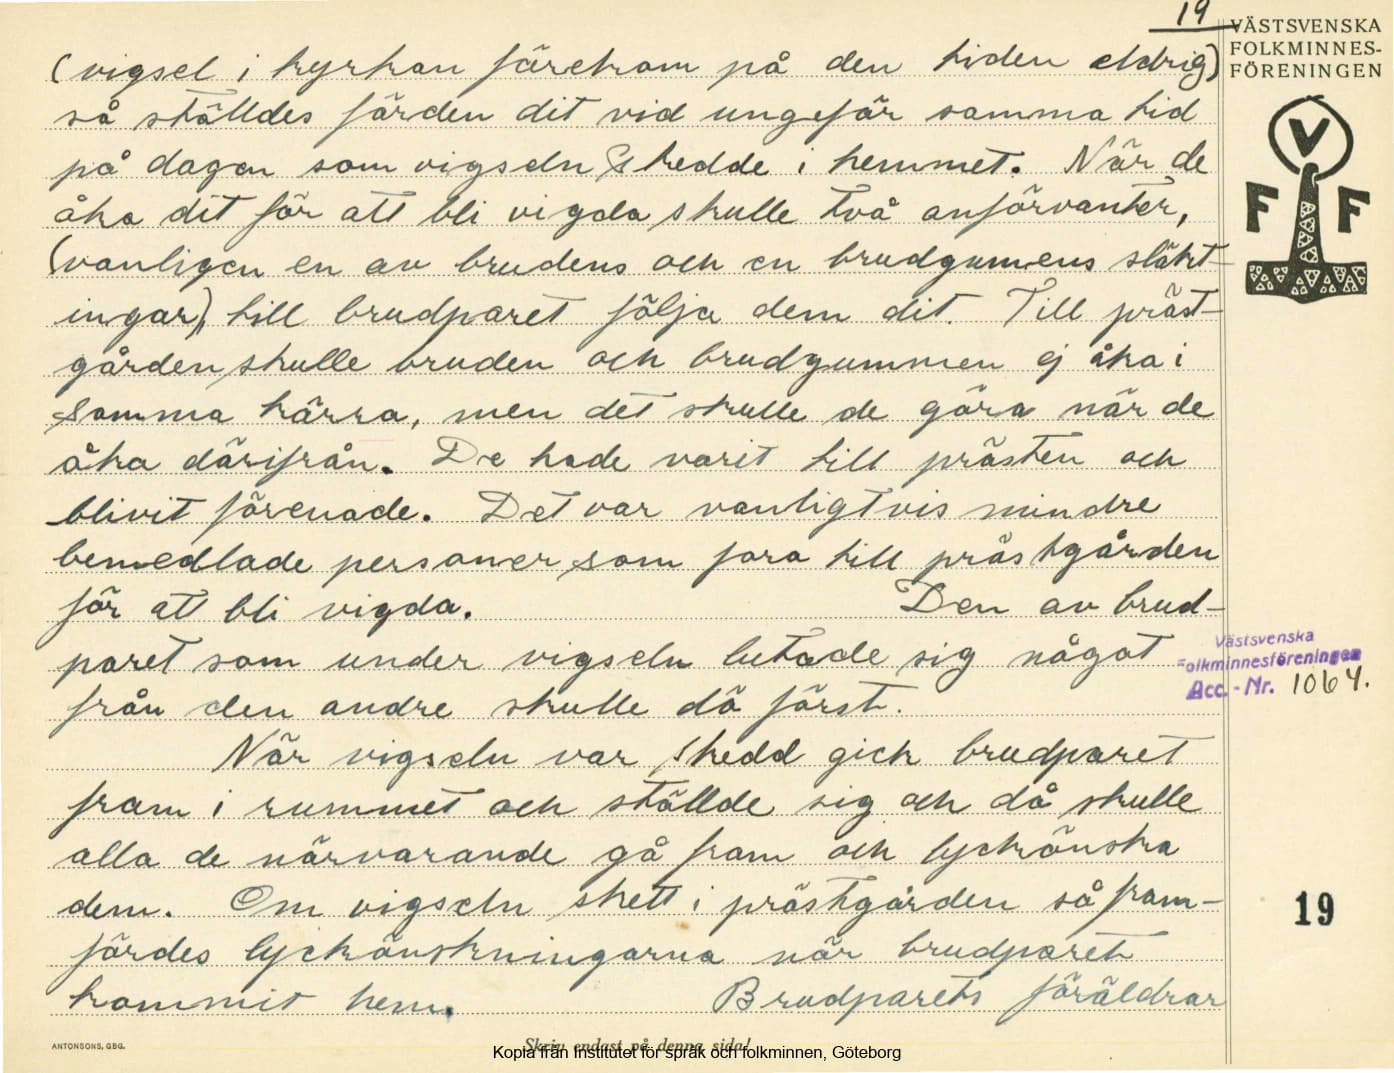 19
VÄSTSVENSKA
FOLKMINNES-
FÖRENINGEN
(vigsel i kyrkan förekom på den tiden aldrig)
så ställdes färden dit vid ungefär samma tid
på dagen som vigseln skedde i hemmet. När de
åka dit för att bli vigda skulle två anförvanter,
(vanligen en av brudens och en brudgumens släkt-
ingar), till brudparet följa dem dit. Till präst-
gården skulle bruden och brudgummen ej åka i
samma kärra, men det skulle de göra när de
åka därifrån. De hade varit till prästen och
blivit förenade. Det var vanligtvis mindre
bemedlade personer som fora till prästgården
för att bli vigda. Den av brud-
paret som under vigseln lutade sig något
från den andre skulle dö först.
När vigseln var skedd gick brudparet
fram i rummet och ställde sig och då skulle
alla de närvarande gå fram och lyckönska
dem. Om vigseln skett i prästgården så fram-
fördes lyckönskningarna när brudparet
kommit hem. Brudparets föräldrar
V
F F
Västsvenska
Folkminnesföreningen
Acc.-Nr. 1064.
19
ANTONSONS, GBG.
Skriv endast på denna sida!
Kopia från Institutet för språk och folkminnen, Göteborg